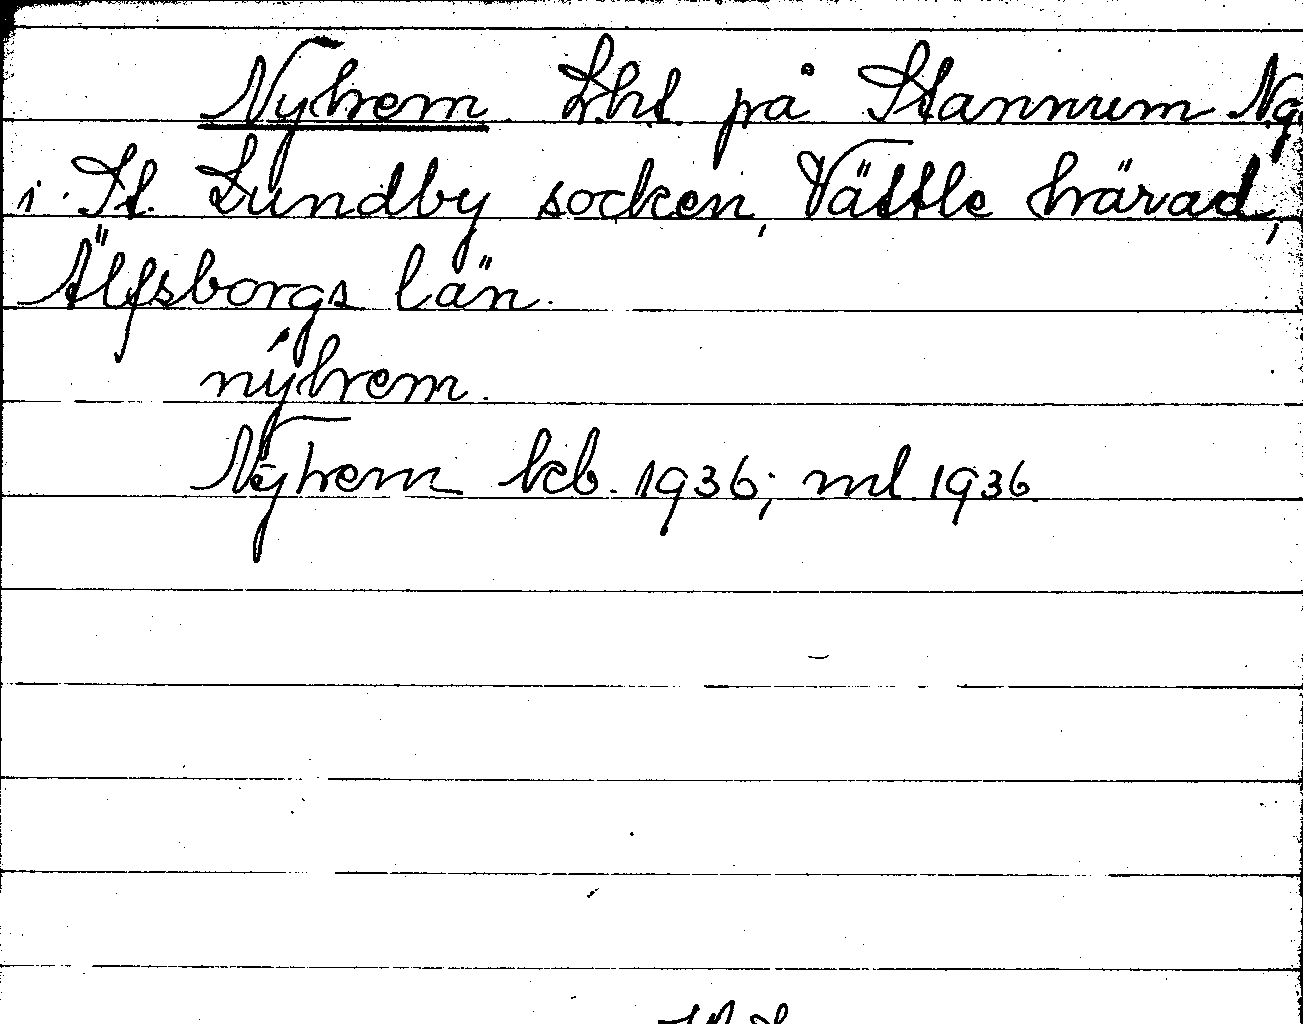 Nyhem. Lht. på Stannum Ng.
i St. Lundby socken, Vättle härad,
Älfsborgs län.
nýhem.
Nyhem kb. 1936; ml. 1936.